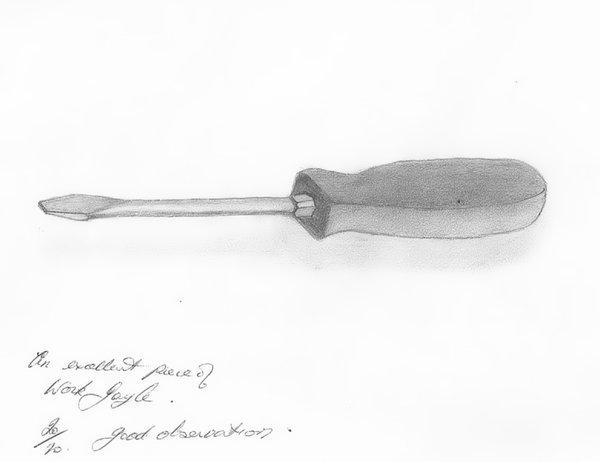 An excellent piece of
Work Gayle.
20/20. good observation.